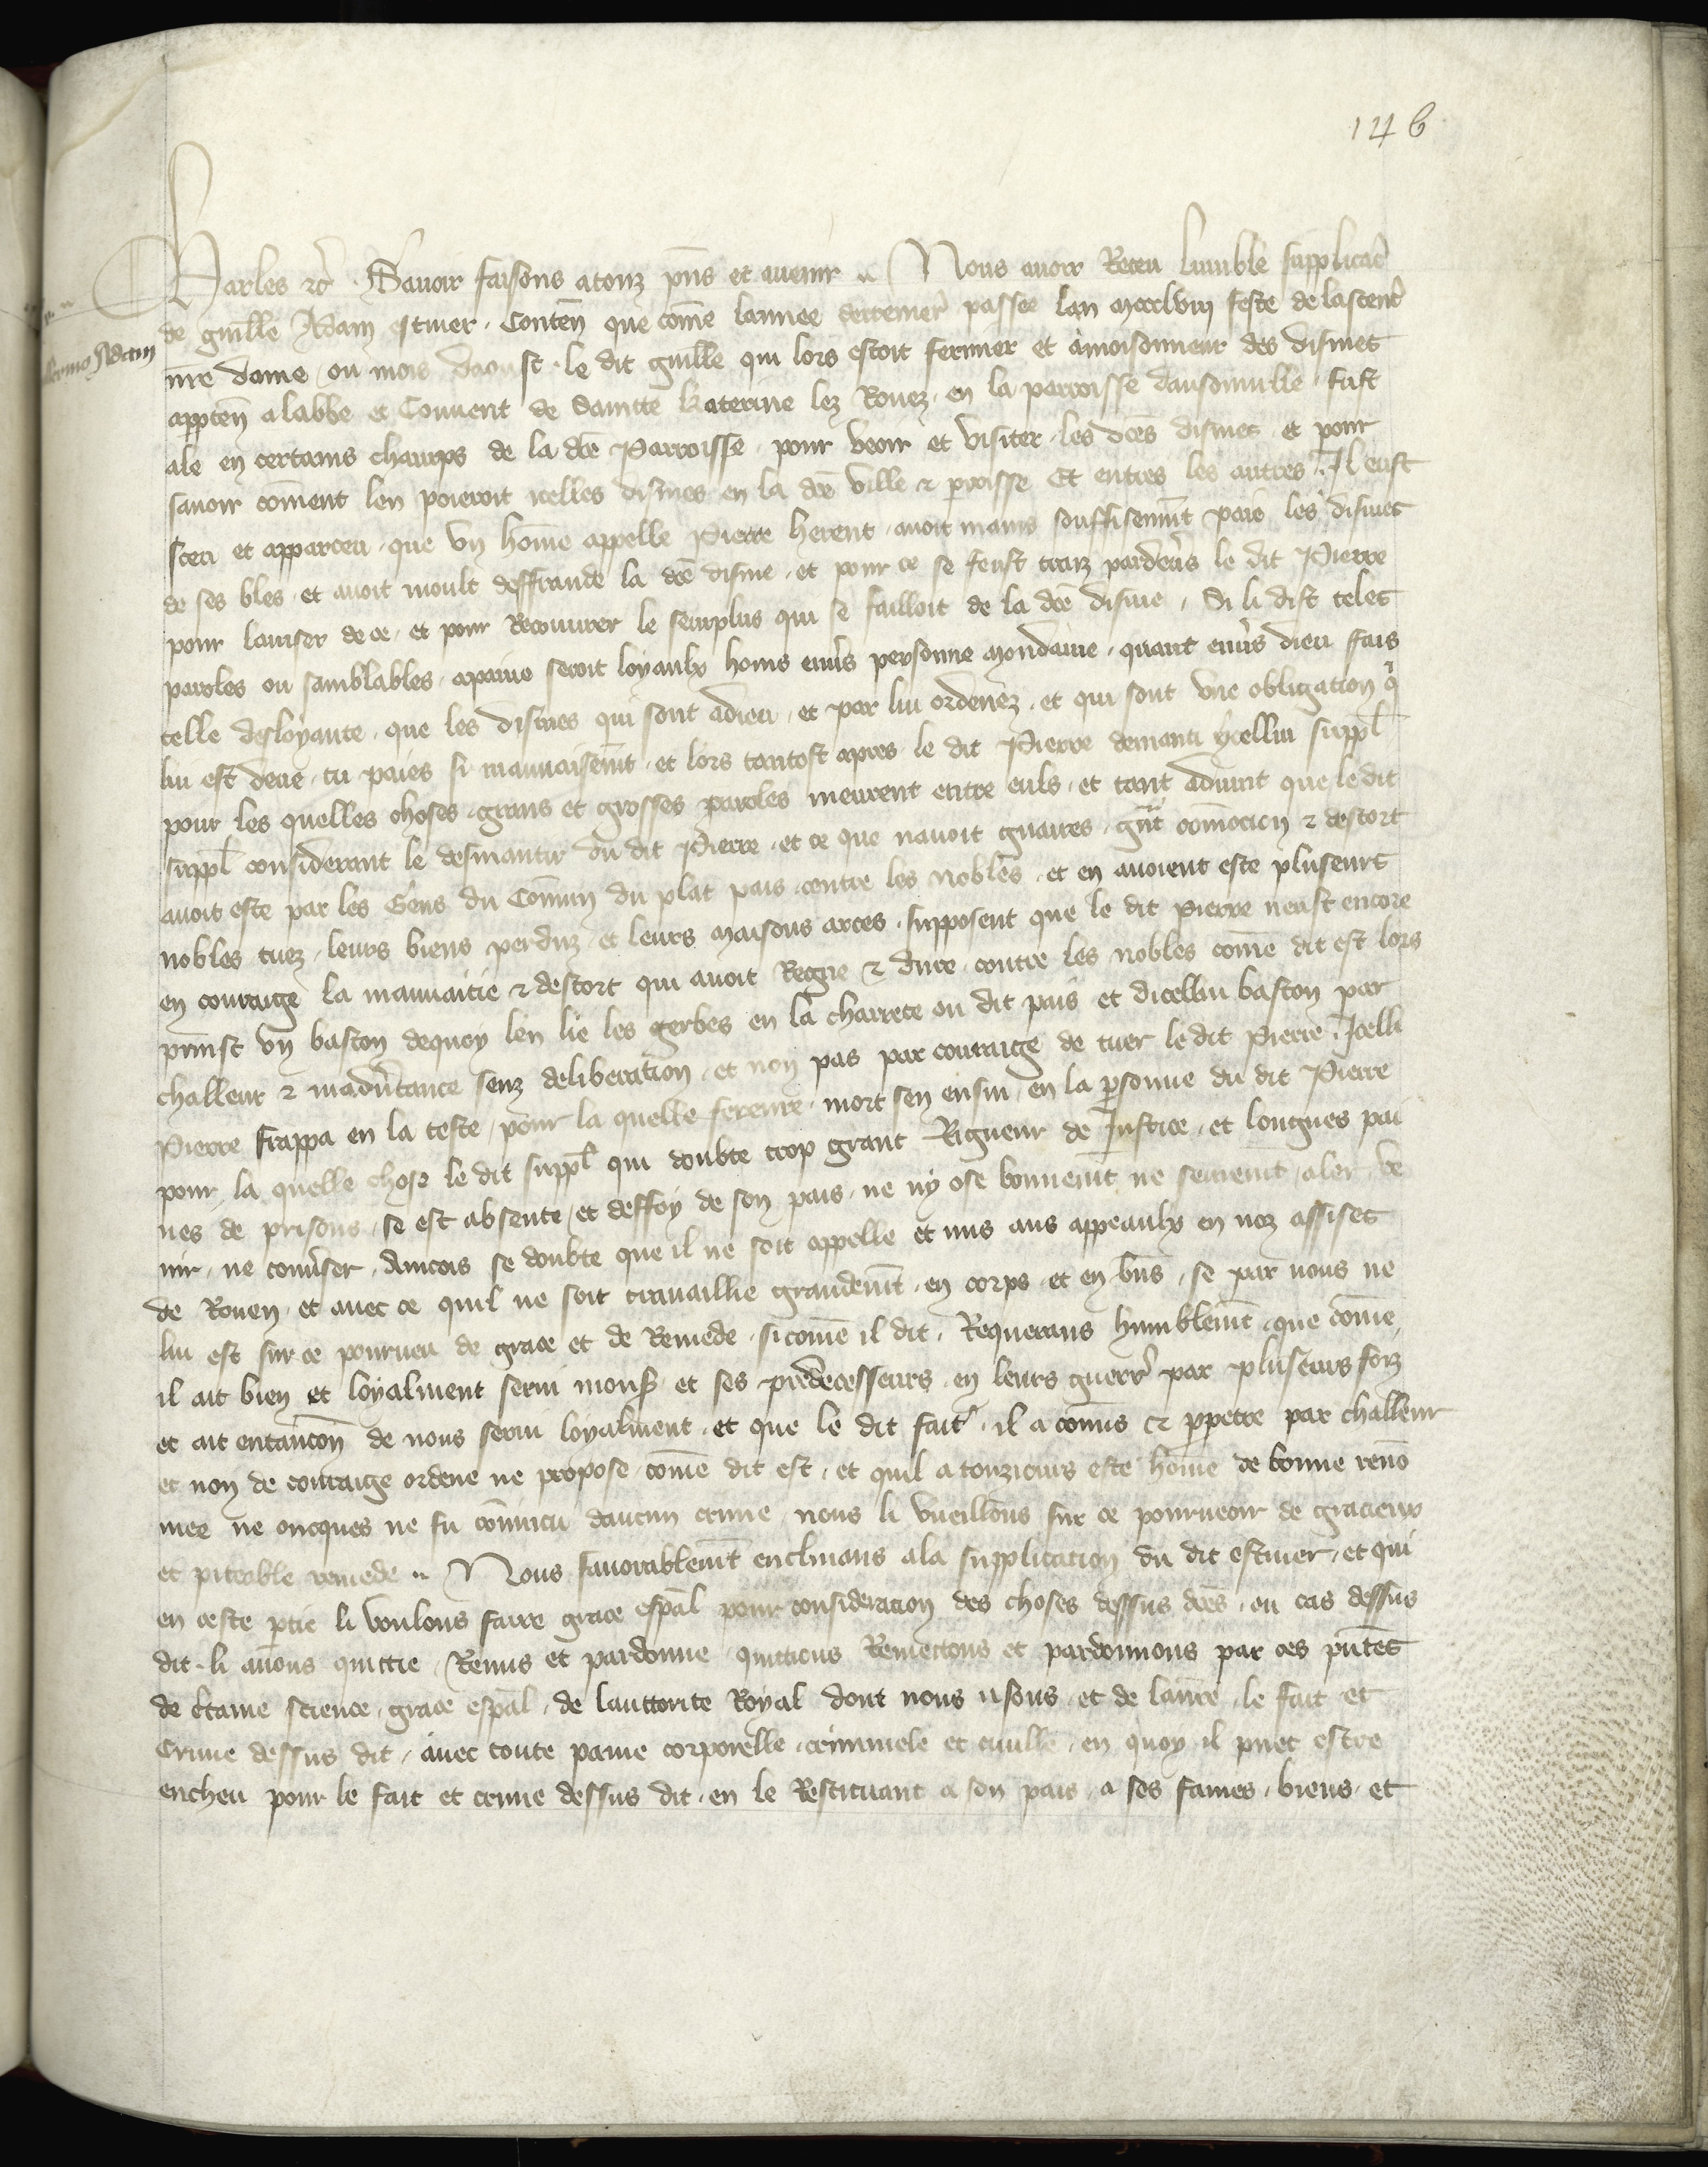 146
Charles &c̃ . Savoir faisons a touz p̃ns et avenir .. Nous avoir Receu lumble supplicac̃
llermo Adam
de guille Adam estuier . Conteñ que com̃e lannee derrenier̃ passee lan mccclviii feste de lascenc̃
nr̃e dame / ou mois daoust . le dit guille qui lors estoit fermier et amoisonneur des dismes
apꝑteñ a labbe et Convent de Saincte Katerine lez Rouez . en la parroisse dansonville . fust
ale en certains champs de la dc̃e Parroisse . pour veoir et visiter . les dc̃es dismes . et pour
savoir com̃ent len poieroit icelles dismes en la dc̃e ville & ꝑroisse Et entres les autres . Il eust
sceu et apparceu . que un hom̃e appelle Pierre herent . avoit mains souffisenm̃t paie les dismes
de ses bles . et avoit moult deffraude la dc̃e disme . et pour ce se feust traiz pardeṽs le dit Pierre
pour laviser de ce . et pour Recouvrer le seurplus qui se failloit de la dc̃e disme . Si li dist teles
paroles ou samblables . apaine seroit loyaulx homs enṽs personne mondaine . quant enṽs dieu fais
telle desloyaute . que les dismes qui sont adieu . et par lui ordenez . et qui sont une obligation q̃
lui est deue . tu paies si mauvaisem̃t . et lors tantost apres le dit Pierre demanti ycellui suppl̃
pour les quelles choses . grans et grosses paroles meurent entre euls . et tant advint que le dit
suppl̃ considerant le desmantir du dit Pierre . et ce que navoit guaires . gñt com̃ocion & descort
avoit este par les Gens du Com̃un du plat pais contre les nobles . et en avoient este pluseurs
nobles tuez . leurs biens perduz . et leurs maisons arces . supposent que le dit pierre neust encore
en couraige la mauvaitie & descort qui avoit Regne & dure . contre les nobles com̃e dit est lors
prinst un baston dequoy len lie les gerbes en la charrete ou dit pais et dicellui baston par
challeur & inadṽtance senz deliberation . et non pas par couraige de tuer le dit pierre . Icelli
Pierre frappa en la teste . pour la quelle fereure . mort sen ensui . en la ꝑsonne du dit Pierre
pour la quelle chose le dit suppl̃ qui doubte trop grant Rigueur de Justice . et longues pai
nes de prisons . se est absente / et deffoy de son pais . ne ny ose bonnem̃t ne seurem̃t / aler . ve
nir . ne conṽser . Aincois se doubte que il ne soit appelle et mis aus appeaulx en noz assises
de Rouen . et avec ce quil ne soit travaillie grandem̃t . en corps . et en bñs . se par nous ne
lui est sur ce pourveu de grace et de Remede . si com̃e il dit . Requerans humblem̃t . que com̃e
il ait bien et loyalment servi mons̃ . et ses p̃decesseurs . en leurs guerr̃ par pluseurs foiz
et ait entancoñ de nous servir loyalment . et que le dit fait . il a com̃is & ꝑpetre par challeur
et non de couraige ordene ne propose . com̃e dit est . et quil a touzieurs este hom̃e de bonne renõ
mee ne oncques ne fu convaicu daucun crime . nous li vueillons sur ce pourveoir de gracieux
et piteable remede .. Nous favorablem̃t enclinans a la supplication du dit estuier . et qui
en ceste ꝑtie li voulons faire grace esp̃al pour consideracion des choses dessus dc̃es . ou cas dessus
dit . li avons quittie . Remis et pardonne . quittons Remettons et pardonnons par ces p̃ntes
de c̃taine science . grace esp̃al . de lauttorite Royal dont nous usons . et de lanr̃e . le fait et
Crime dessus dit . avec toute paine corporelle . criminele et civille . en quoy il puet estre
encheu pour le fait et crime dessus dit . en le Restituant a son pais . a ses fames . biens . et